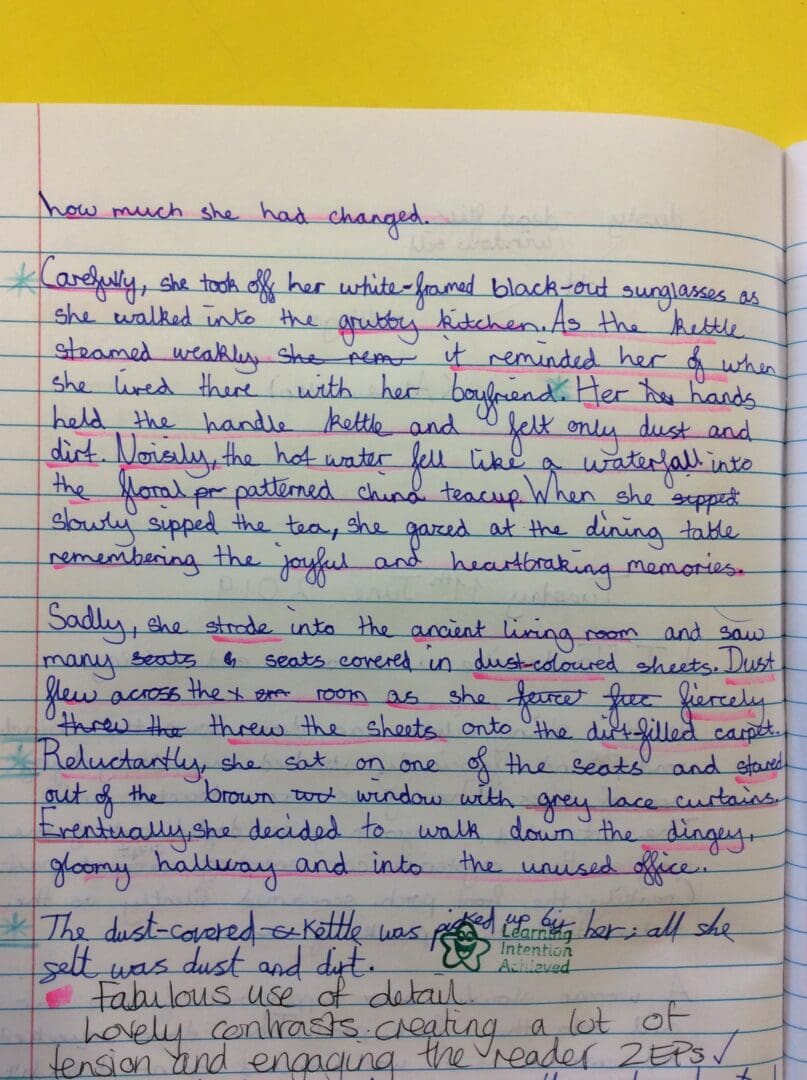 how much she had changed.
Carefully, she took off her white-framed black-out sunglasses as
she walked into the grubby kitchen. As the kettle
steamed weakly she rem it reminded her of when
she lived there with her boyfriend. Her her hands
held the handle kettle and felt only dust and
dirt. Noisily, the hot water fell like a waterfall into
the floral pr patterned china teacup. When she sipped
slowly sipped the tea, she gazed at the dining table
remembering the joyful and heartbraking memories.
Sadly, she strode into the ancient living room and saw
many seats seats covered in dust-coloured sheets. Dust
flew across the room as she fiercely
threw the threw the sheets onto the dirt-filled carpet.
Reluctantly, she sat on one of the seats and stared
out of the brown window with grey lace curtains.
Eventually, she decided to walk down the dingey,
gloomy hallway and into the unused office.
The dust-covered kettle was picked up by her; all she
felt was dust and dirt.
Learning
Intention
Achieved
Fabulous use of detail.
Lovely contrasts creating a lot of
tension and engaging the reader 2EPs ✓